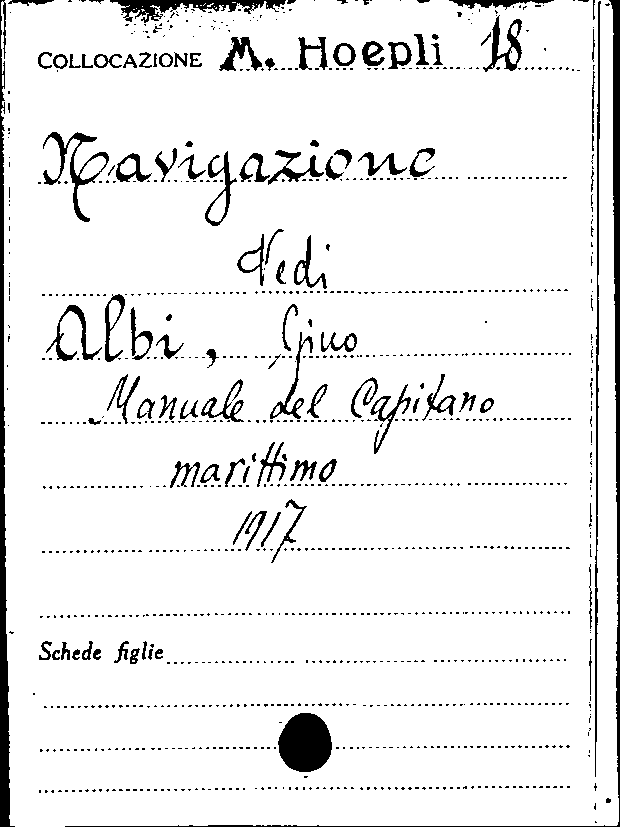 COLLOCAZIONE M. Hoepli 18
Navigazione
Vedi
Albi, Gino
Manuale del Capitano
marittimo
1917
Schede figlie